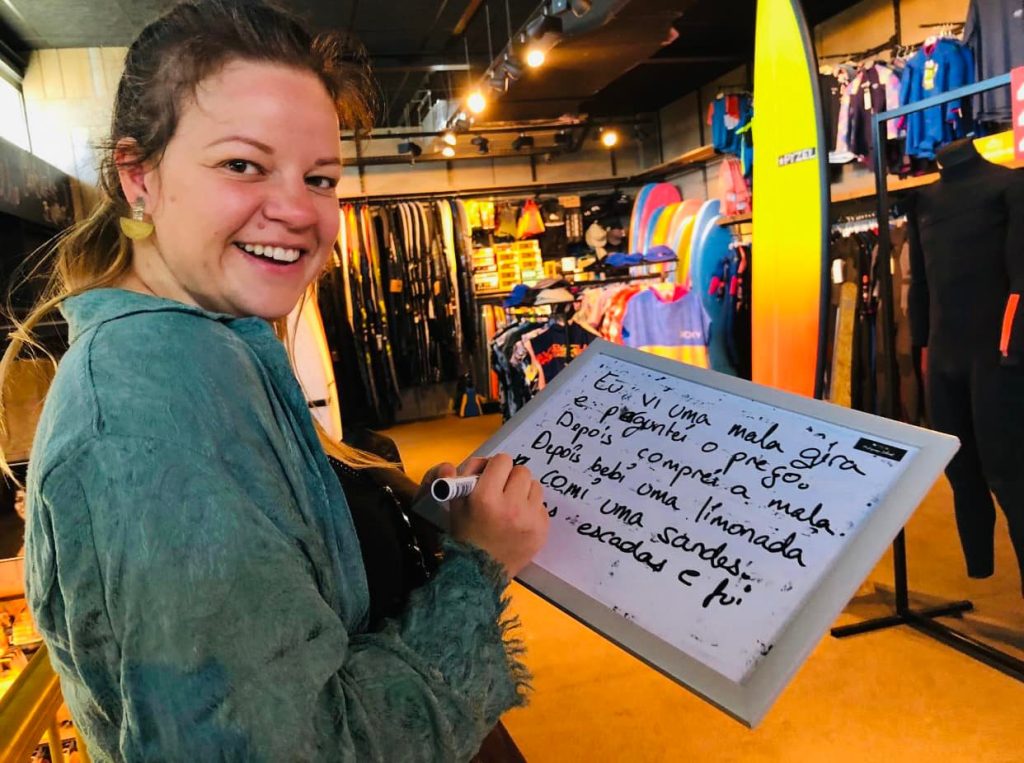 Eu vi uma mala gira
e perguntei o preço.
Depois comprei a mala.
Depois bebi uma limonada
comi uma sandes.
escadas e fui
PYZEL
ROXY